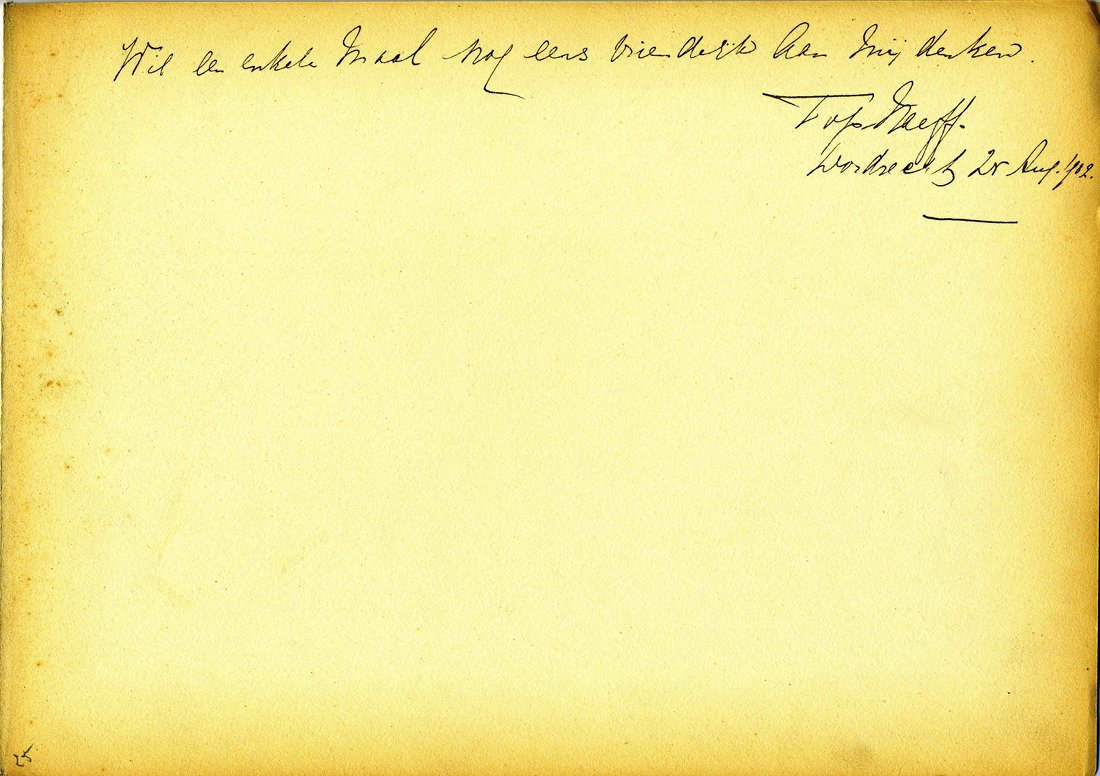 Wil een enkele maal nog eens vriendelijk aan mij denken.
Top Naeff.
Dordrecht 25 Aug. 1902.
25